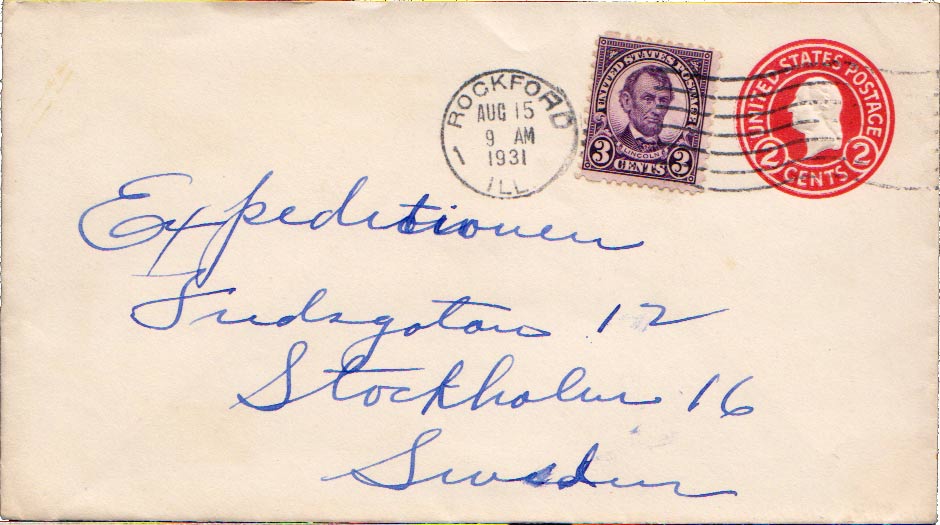 ROCKFORD
AUG 15
9 AM
1931
1
ILL.
UNITED STATES POSTAGE
LINCOLN
3 CENTS 3
UNITED STATES POSTAGE
2 CENTS 2
Expeditionen
12
Stockholm 16
Sweden